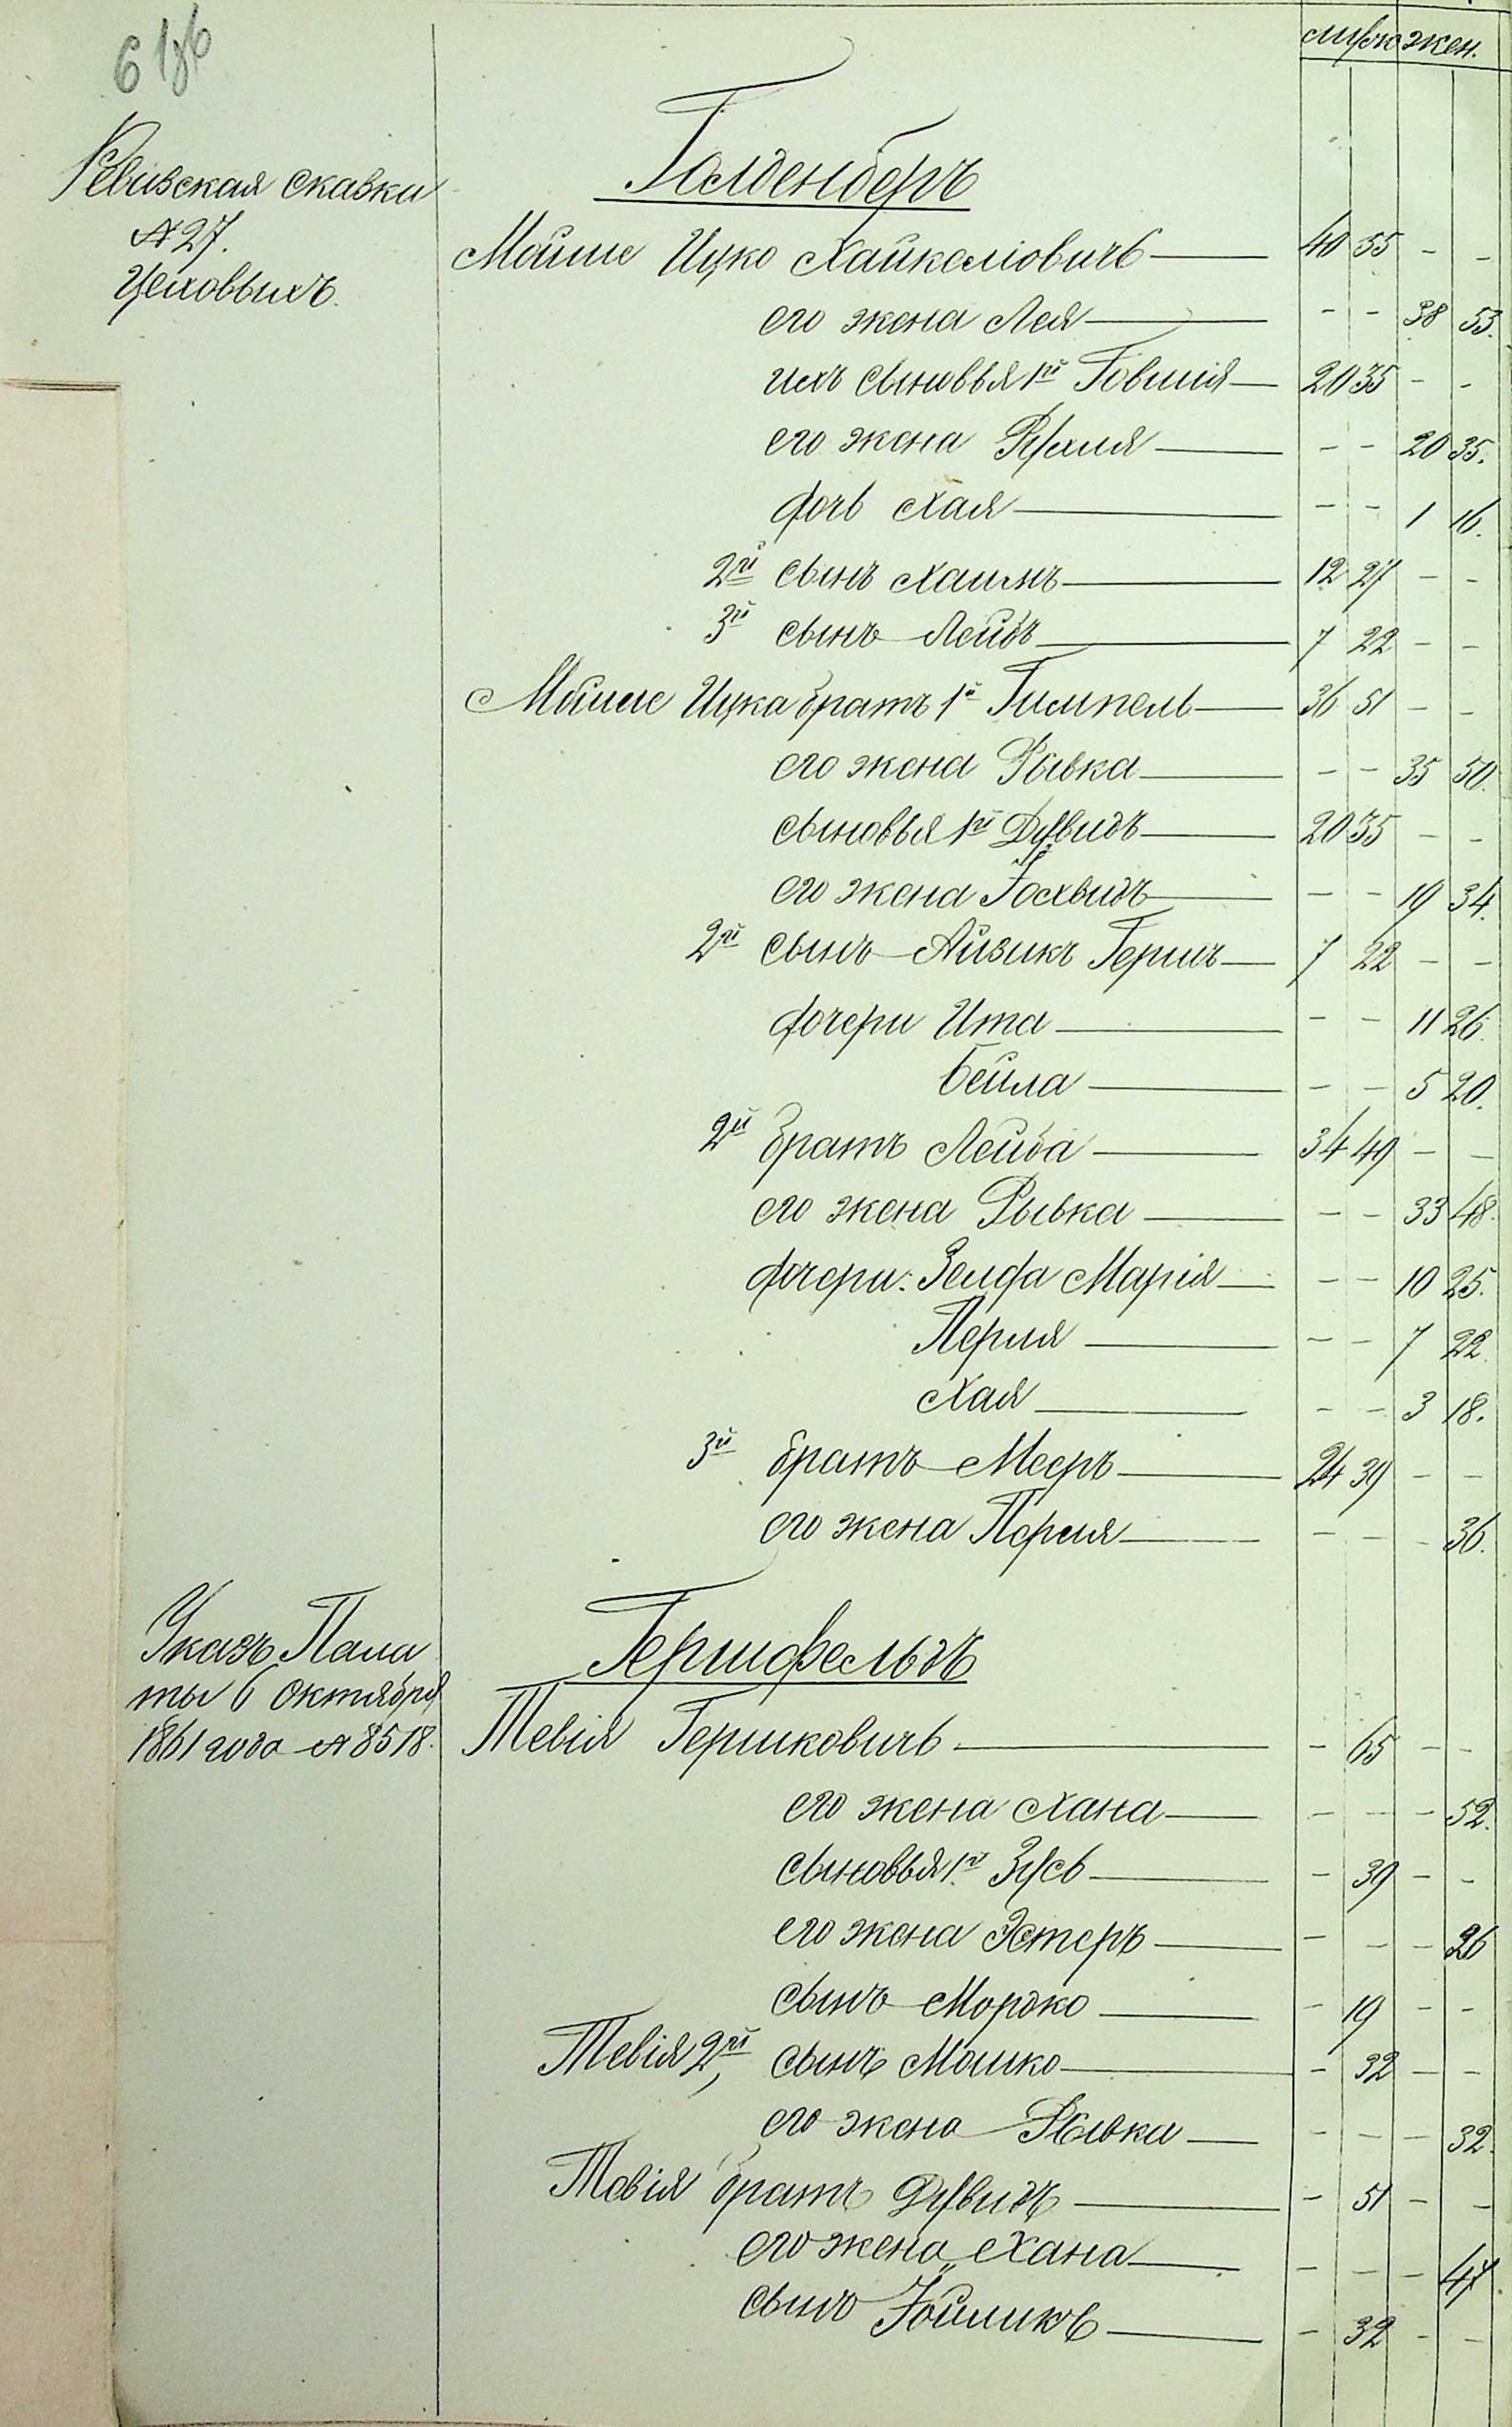 мужс жен.
Ревизская сказки
№ 27.
Цеховыхъ.
Голденберъ
Мойше Ицко Хайкеліовичъ — 40 55 - -
его жена Лея — - - 38 53.
ихъ сыновья 1й Говшія — 20 35 - -
его жена Рухля — - - 20 35.
дочь Хая — - - 1 16.
2й сынъ Хаимъ — 12 27 - -
3й сынъ Лейбъ — 7 22 - -
Мойше Ицка братъ 1й Гимпель — 36 51 - -
его жена Рывка — - - 35 50.
сыновья 1й Дувидъ — 20 35 - -
его жена Іохвидъ — - - 19 34.
2й сынъ Айзикъ Гершъ — 7 22 - -
дочери Ита — - - 11 26.
Бейла — - - 5 20.
2й братъ Лейба — 34 49 - -
его жена Рывка — - - 33 48.
дочери: Зелда Марія — - - 10 25.
Перля — - - 7 22.
Хая — - - 3 18.
3й братъ Мееръ — 24 39 - -
его жена Перля — - - - 36.
Указъ Пала
ты 6 Октября
1861 года № 8518.
Гершфельдъ
Тевія Гершковичъ — - 65 - -
его жена Хана — - - - 52.
сыновья 1й Зусь — - 39 - -
его жена Эстеръ — - - - 26
сынъ Мордко — - 19 - -
Тевія 2й, сынъ Мошко — - 32 - -
его жена Рывка — - - - 32.
Тевія братъ Дувидъ — - 51 - -
его жена Хана — - - - 47.
сынъ Іойликъ — - 32 - -